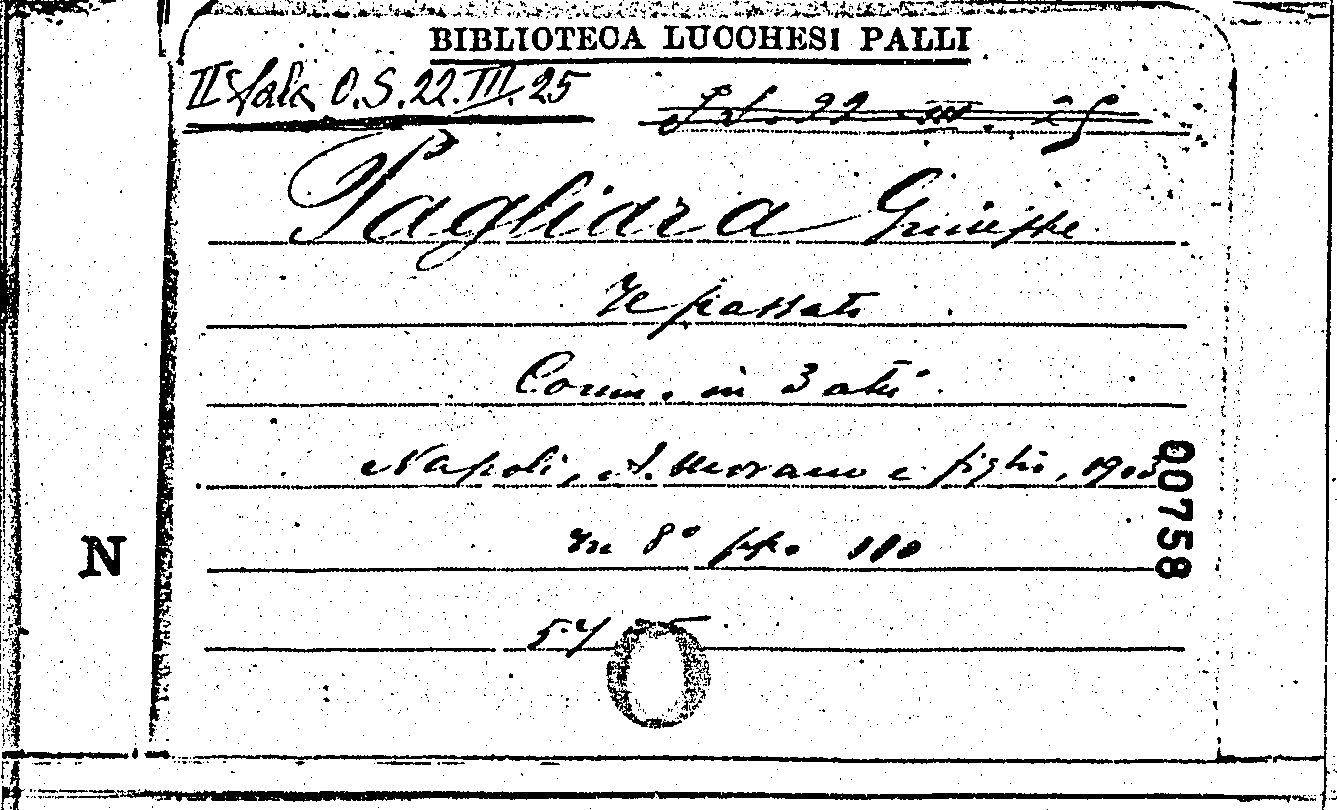 BIBLIOTECA LUCCHESI PALLI
II Sala O.S.22.III.25
22 III. 25
Pagliara Giuseppe
Il passato
Comm. in 3 atti
Napoli, A. Morano e figlio, 1903
In 8° pp. 110
00758
N